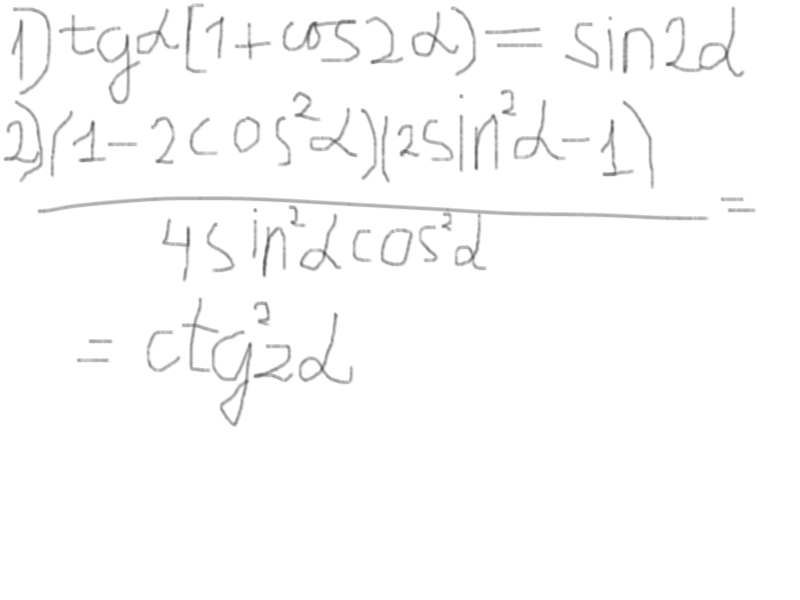 1) tgα(1+cos2α) = sin2α
2) (1-2cos²α)(2sin²α-1)
=
4sin²αcos²α
= ctg²2α